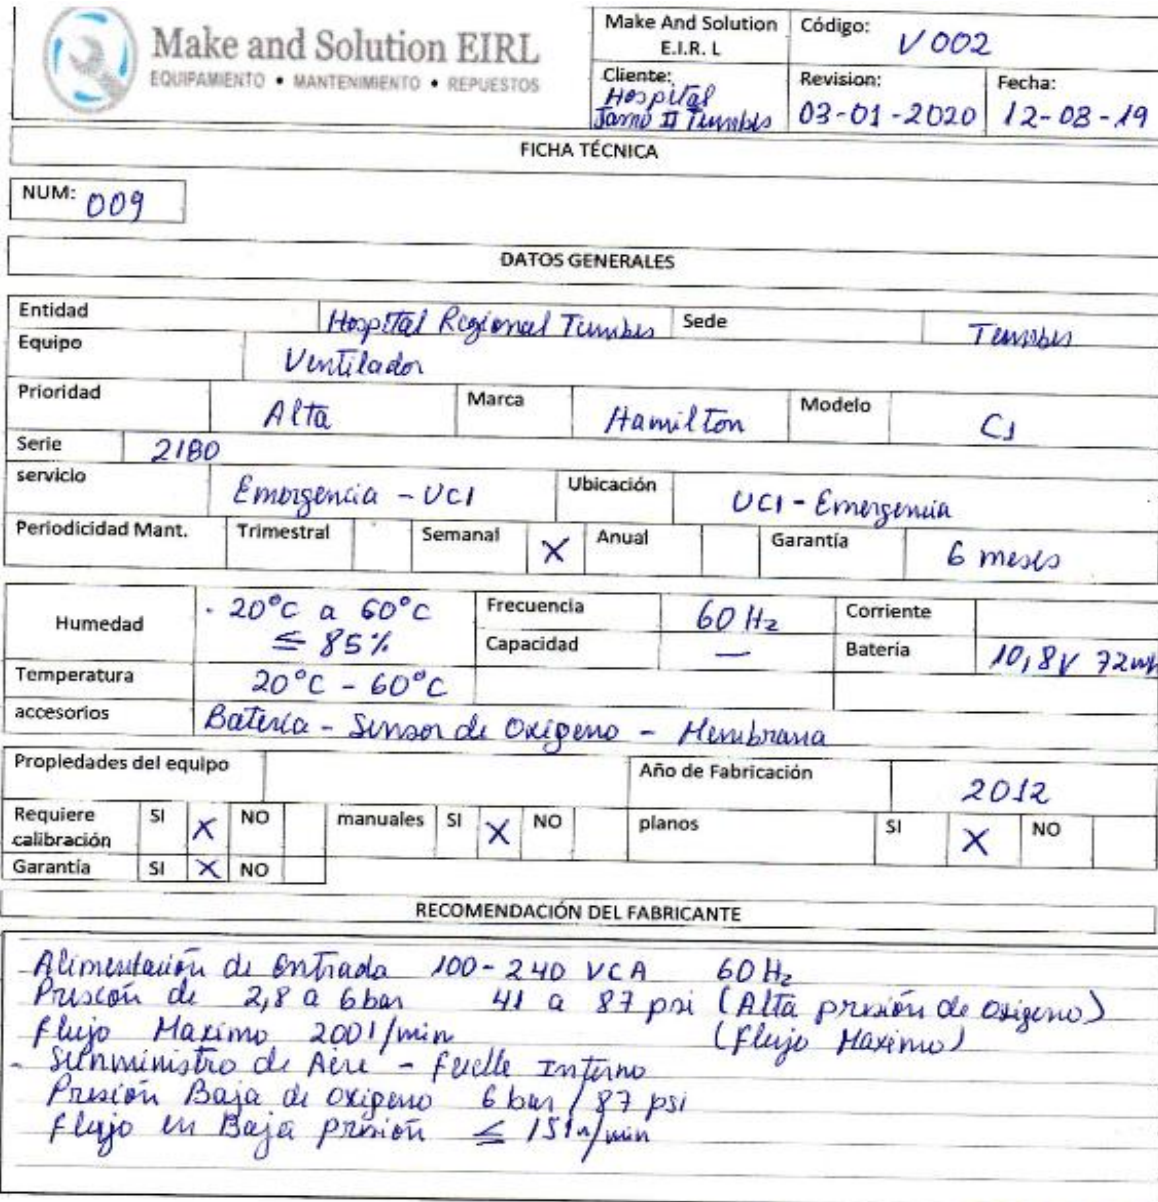 Make and Solution EIRL
EQUIPAMIENTO • MANTENIMIENTO • REPUESTOS
Make And Solution E.I.R. L
Código: V002
Cliente: Hospital Jamo II Tumbes
Revision: 03-01-2020
Fecha: 12-08-19
FICHA TÉCNICA
NUM: 009
DATOS GENERALES
Entidad Hospital Regional Tumbes Sede Tumbes
Equipo Ventilador
Prioridad Alta Marca Hamilton Modelo C1
Serie 2180
servicio Emergencia - UCI Ubicación UCI - Emergencia
Periodicidad Mant. Trimestral Semanal X Anual Garantía 6 meses
Humedad - 20°C a 60°C ≤ 85% Frecuencia 60 Hz Corriente
Capacidad — Bateria 10,8V 72wh
Temperatura 20°C - 60°C
accesorios Batería - Sensor de Oxigeno - Membrana
Propiedades del equipo Año de Fabricación 2012
Requiere calibración SI X NO manuales SI X NO planos SI X NO
Garantía SI X NO
RECOMENDACIÓN DEL FABRICANTE
Alimentación de Entrada 100-240 VCA 60 Hz
Presión de 2,8 a 6 bar 41 a 87 psi (Alta presión de Oxigeno)
flujo Maximo 200 l/min (flujo Maximo)
- Sunministro de Aire - fuelle Interno
Presión Baja de oxigeno 6 bar / 87 psi
flujo en Baja presión ≤ /min